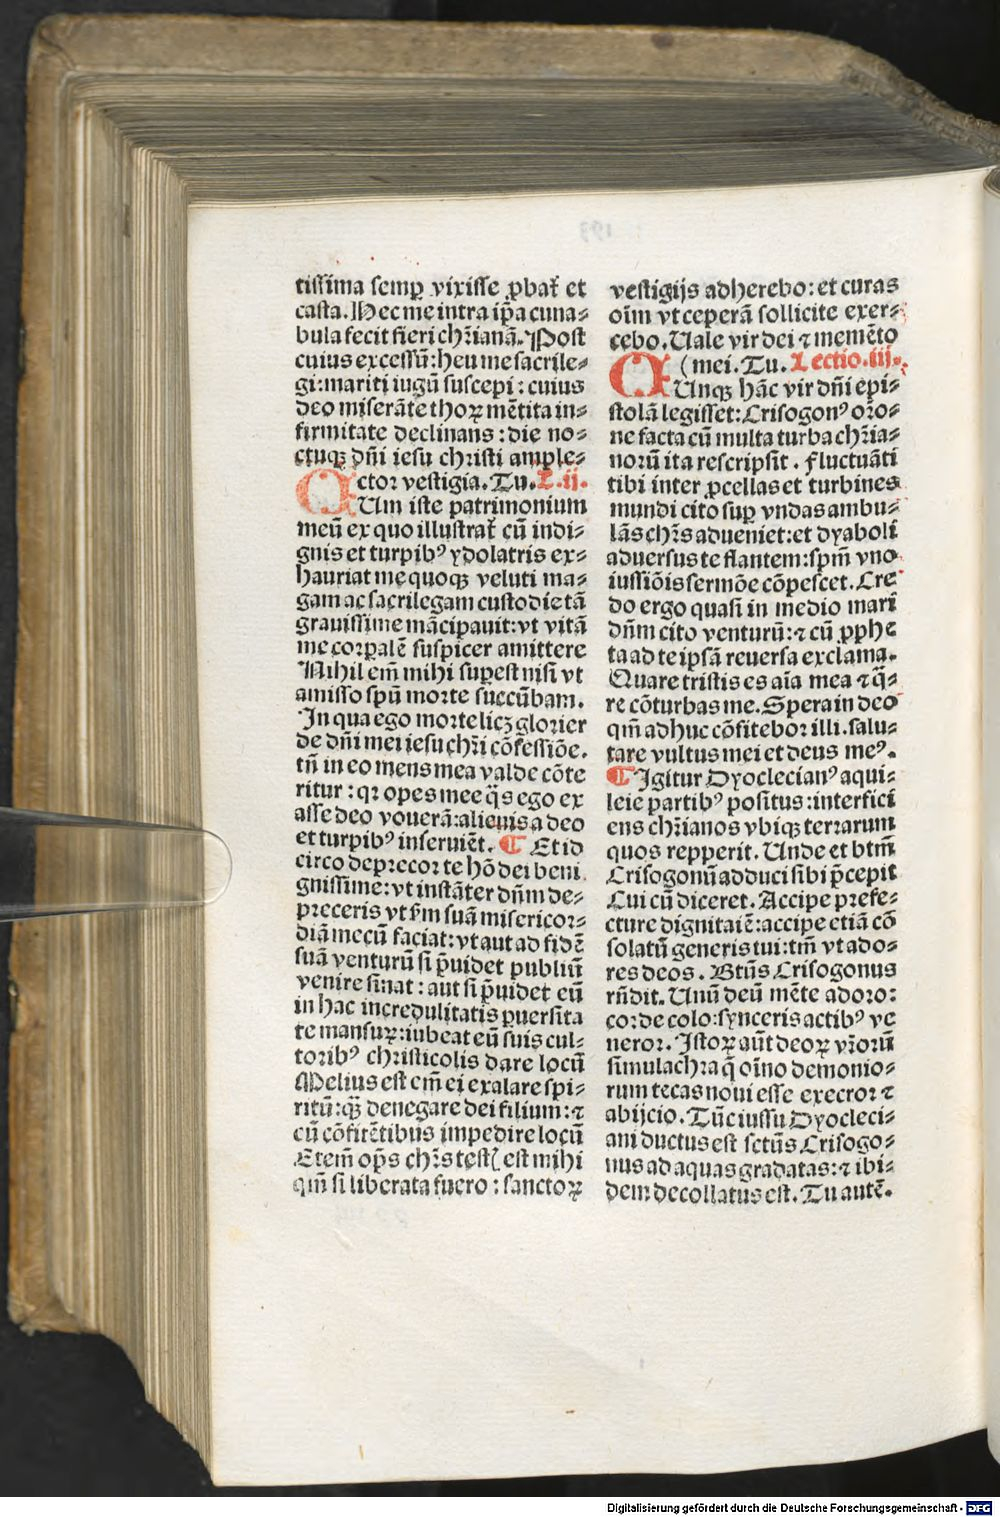 tissima semꝑ vixisse ꝓbat᷑ et
casta. Hec me intra ip̄a cuna⸗
bula fecit fieri chr̄ianā. Post
cuius excessū: heu me sacrile⸗
gi: mariti iugū suscepi: cuius
deo miserāte thoꝝ mētita in⸗
firmitate declinans: die no⸗
ctuqꝫ dn̄i iesu christi ample⸗
ctor vestigia. Tu. L. ij.
CUm iste patrimonium
meū ex quo illustrat᷑ cū indi⸗
gnis et turpibꝰ ydolatris ex⸗
hauriat me quoqꝫ veluti ma⸗
gam ac sacrilegam custodie tā
grauissime mācipauit: vt vitā
me corꝑalē suspicer amittere
Nihil em̄ mihi suꝑest nisi vt
amisso spū morte succūbam.
In qua ego morte licꝫ glorier
de dn̄i mei iesu chr̄i cōfessiōe.
tn̄ in eo mens mea valde cōte
ritur: qꝛ opes mee q̄s ego ex
asse deo vouerā: alienis a deo
et turpibꝰ inseruiēt. ¶ Et id
circo deprecor te hō dei beni
gnissime: vt instāter dn̄m de⸗
preceris vt ẜm suā misericor⸗
diā mecū faciat: vt aut ad fidē
suā venturū si p̄uidet publiū
venire sinat: aut si p̄uidet eū
in hac incredulitatis ꝑuersita
te mansuꝝ: iubeat eū suis cul⸗
toribꝰ christicolis dare locū
Melius est em̄ ei exalare spi⸗
ritū: qꝫ̄ denegare dei filium: ⁊
cū cōfitētibus impedire locū
Etem̄ op̄s chr̄s testꝭ est mihi
qm̄ si liberata fuero: sanctoꝝ
vestigijs adherebo: et curas
oīm vt ceperā sollicite exer⸗
cebo. Uale vir dei ⁊ memēto
(mei. Tu. Lectio. iij.
CUnqꝫ hāc vir dn̄i epi⸗
stolā legisset: Crisogonꝰ orō⸗
ne facta cū multa turba chr̄ia⸗
norū ita rescripsit. Fluctuāti
tibi inter ꝓcellas et turbines
mundi cito suꝑ vndas ambu⸗
lās chr̄s adueniet: et dyaboli
aduersus te flantem: spm̄ vno
iussiōis sermōe cōpescet. Cre
do ergo quasi in medio mari
dn̄m cito venturū: ⁊ cū ꝓphe
ta ad te ipsā reuersa exclama.
Quare tristis es aīa mea ⁊ q̄⸗
re cōturbas me. Spera in deo
qm̄ adhuc cōfitebor illi. salu⸗
tare vultus mei et deus meꝰ.
¶ Igitur Dyoclecianꝰ aqui⸗
leie partibꝰ positus: interfici
ens chr̄ianos vbiqꝫ terrarum
quos repperit. Unde et btm̄
Crisogonū adduci sibi p̄cepit
Cui cū diceret. Accipe prefe⸗
cture dignitatē: accipe etiā cō
solatū generis tui: tm̄ vt ado⸗
res deos. Btūs Crisogonus
rn̄dit. Unū deū mēte adoro:
corde colo: synceris actibꝰ ve
neror. Istoꝝ aūt deoꝝ vr̄orū
simulachra q̄ oīno demonio⸗
rum tecas noui esse execror ⁊
abijcio. Tūc iussu Dyocleci⸗
ani ductus est sctūs Crisogo⸗
nus ad aquas gradatas: ⁊ ibi⸗
dem decollatus est. Tu autē.
Digitalisierung gefördert durch die Deutsche Forschungsgemeinschaft - DFG